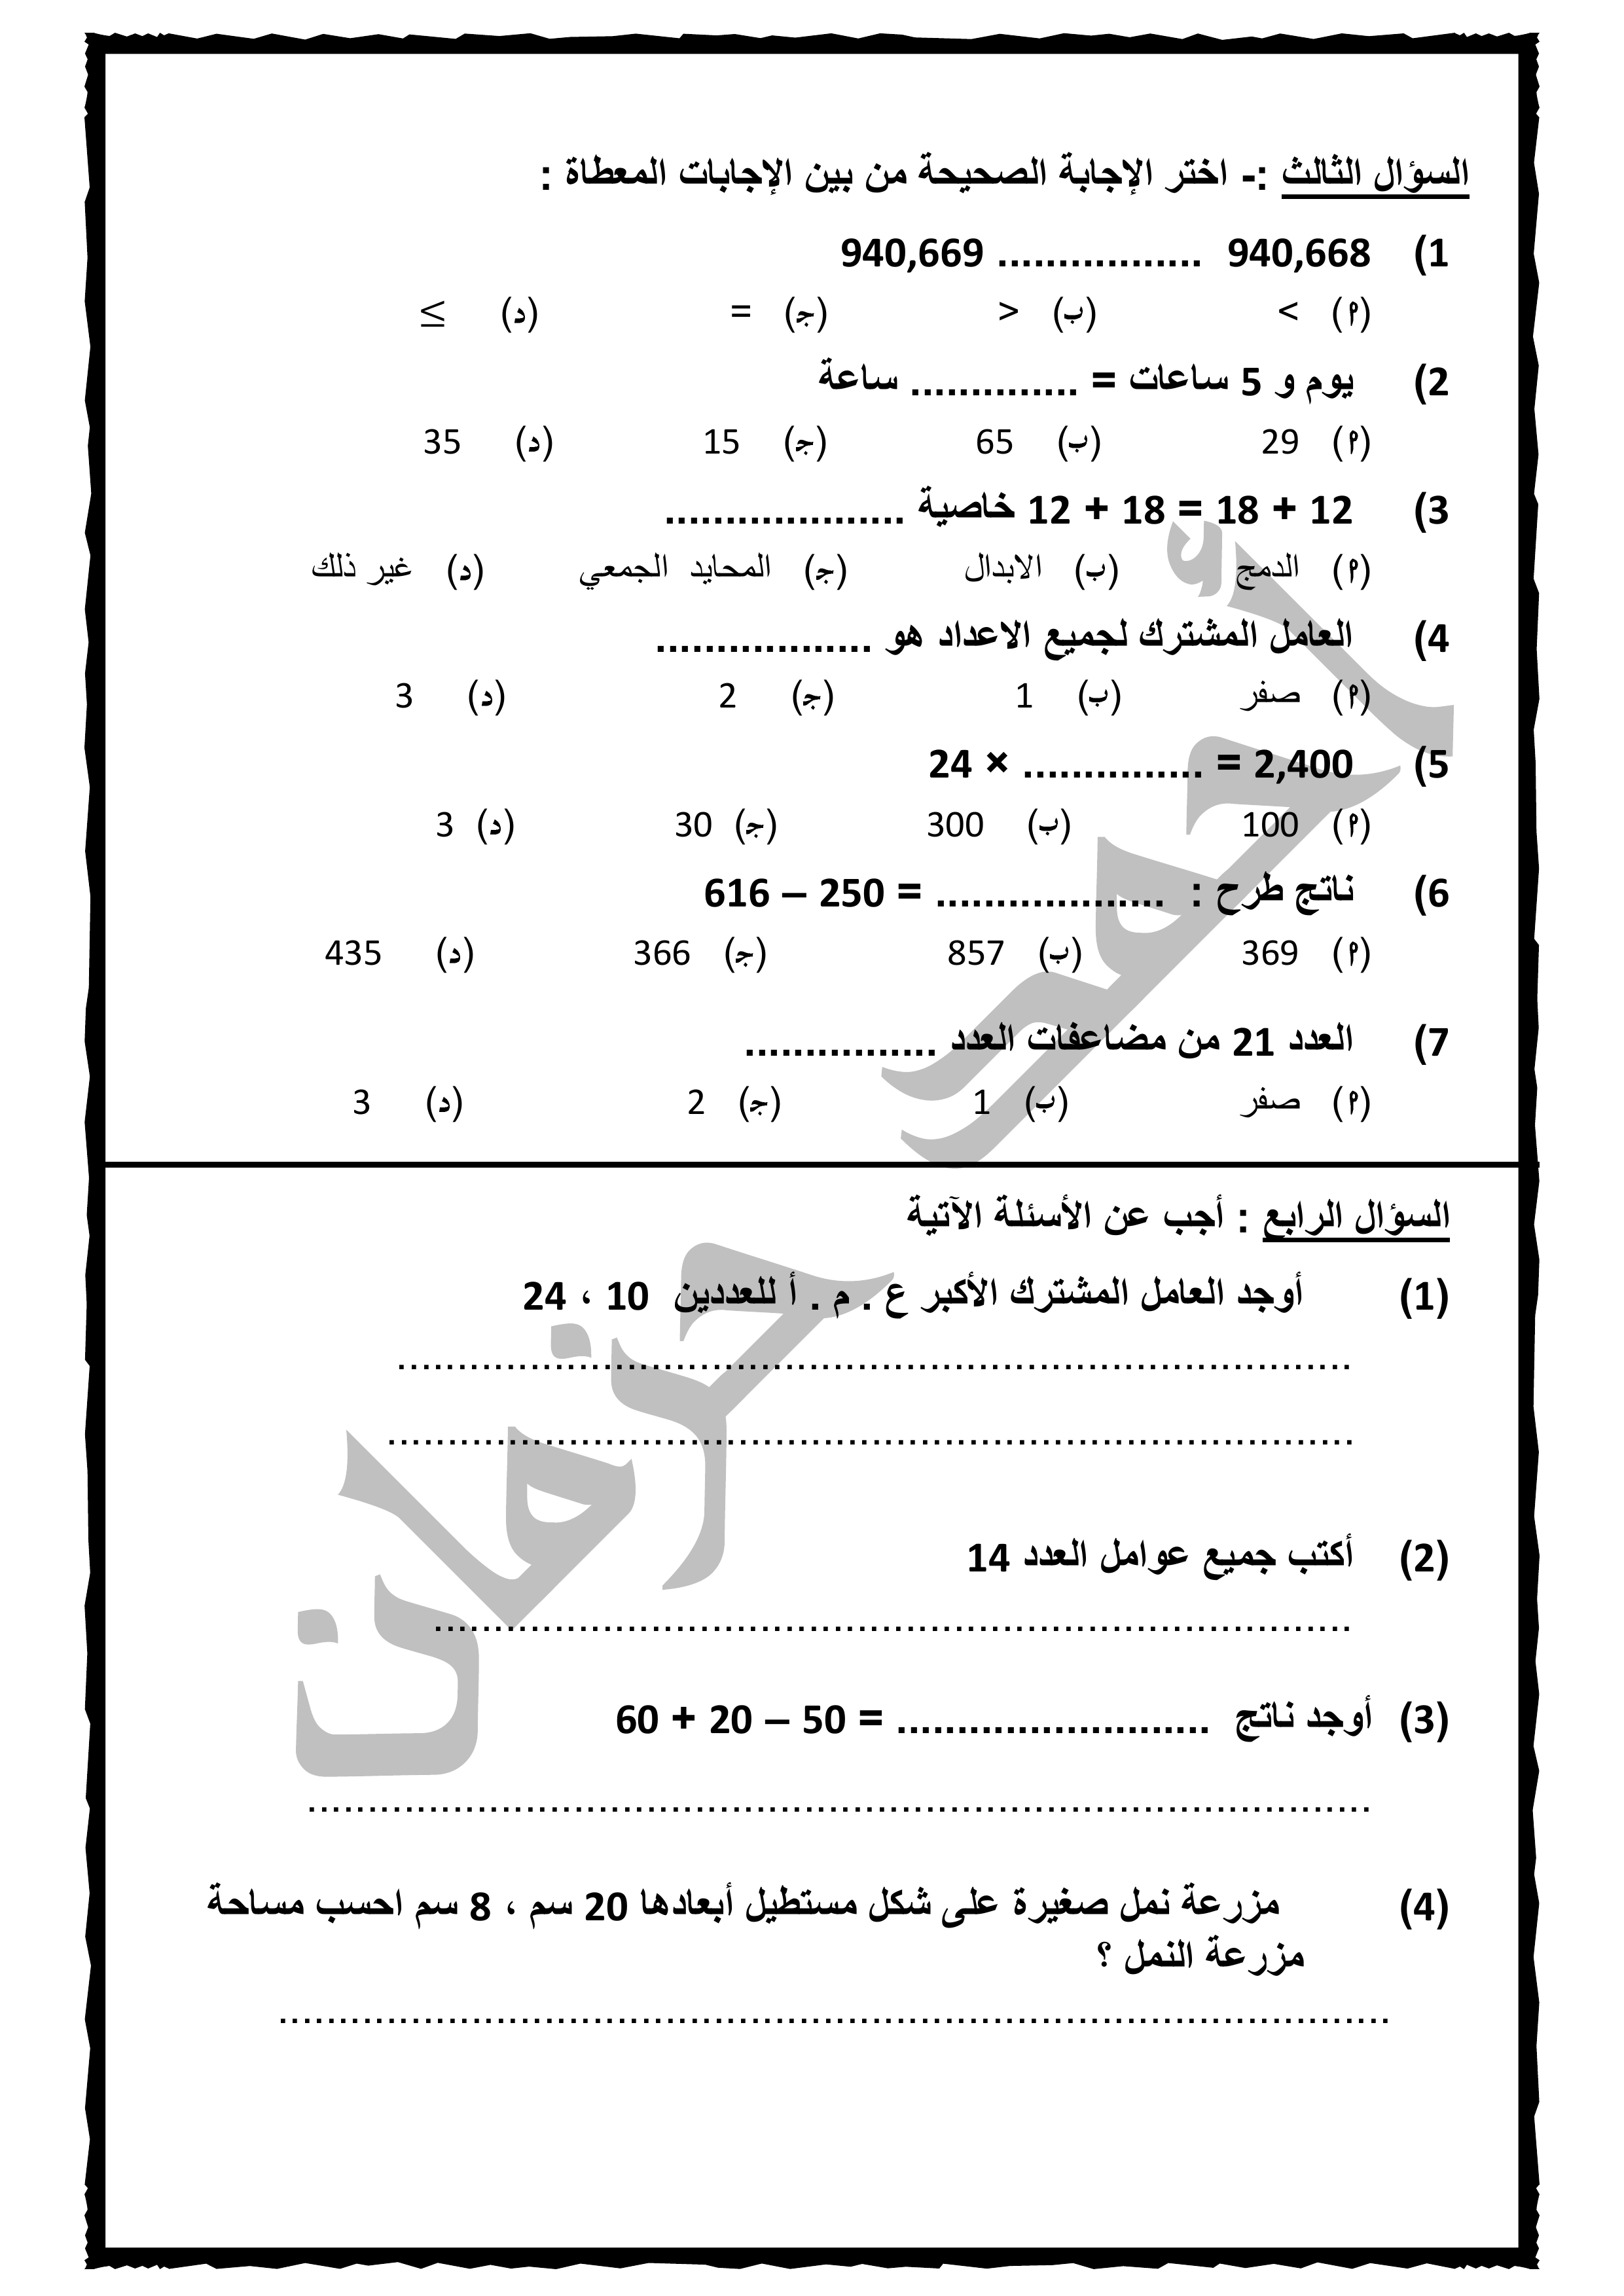 السؤال الثالث :- اختر الإجابة الصحيحة من بين الإجابات المعطاة :
1) 940,668 ................. 940,669
(م) < (ب) > (ج) = (د) ≥
2) يوم و 5 ساعات = .............. ساعة
(م) 29 (ب) 65 (ج) 15 (د) 35
3) 12 + 18 = 18 + 12 خاصية ....................
(م) الدمج (ب) الابدال (ج) المحايد الجمعي (د) غير ذلك
4) العامل المشترك لجميع الاعداد هو ..................
(م) صفر (ب) 1 (ج) 2 (د) 3
5) 24 × ............... = 2,400
(م) 100 (ب) 300 (ج) 30 (د) 3
6) ناتج طرح : 616 – 250 = ...................
(م) 369 (ب) 857 (ج) 366 (د) 435
7) العدد 21 من مضاعفات العدد ................
(م) صفر (ب) 1 (ج) 2 (د) 3
السؤال الرابع : أجب عن الأسئلة الآتية
(1) أوجد العامل المشترك الأكبر ع . م . أ للعددين 10 ، 24
................................................................................
................................................................................
(2) أكتب جميع عوامل العدد 14
.............................................................................
(3) أوجد ناتج 60 + 20 – 50 = ..........................
.........................................................................................
(4) مزرعة نمل صغيرة على شكل مستطيل أبعادها 20 سم ، 8 سم احسب مساحة
مزرعة النمل ؟
.............................................................................................
أحمد
حزمان